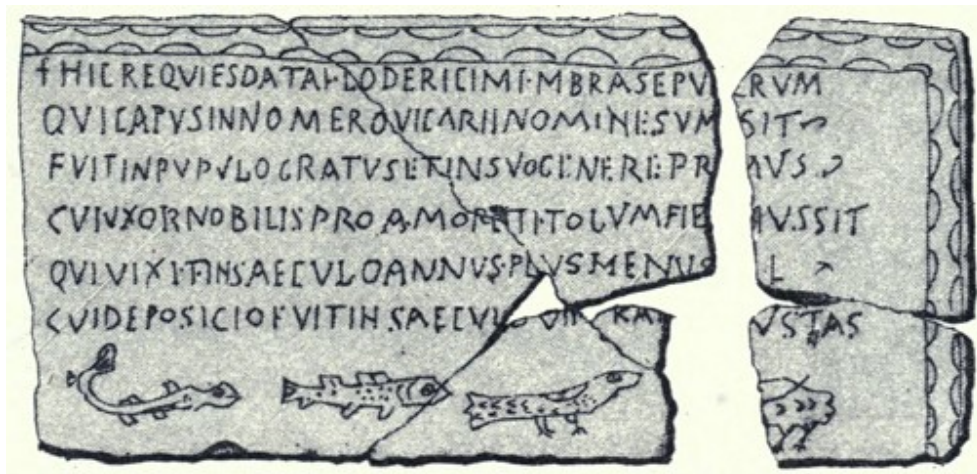 †HICREQVIESDATAHLODERICIMEMBRASEPV RVM
QVICAPVSINNOMEROVICARIINOMINESVM SIT
FVITINPVPVLOGRATVSETINSVOGENEREPR MVS
CVIVXORNOBILISPROAMORETITOLVMFIE VSSIT
QVIVIXITINSAECVLOANNVSPLVSMENVS L
CVIDEPOSICIOFVITINSAECVLOVIIKAL VSTAS